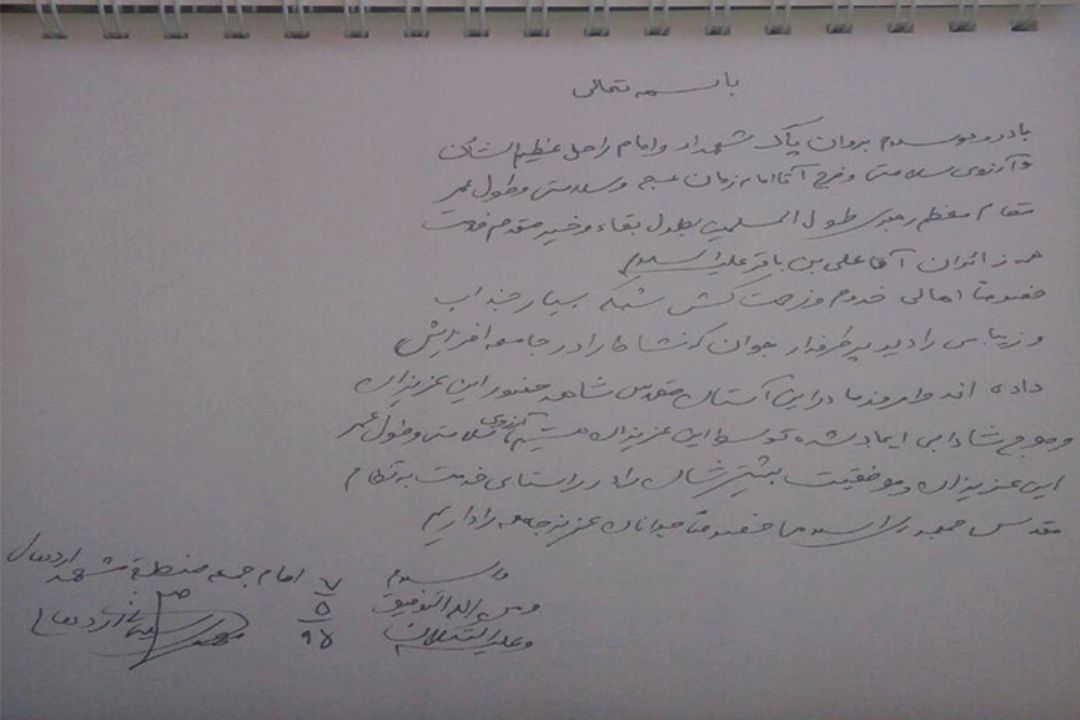 باسمه تعالی
با درود و سلام بروان پاک شهدا و امام راحل عظیم الشأن
و آرزوی سلامتی و فرج آقا امام زمان عج و سلامتی و طول عمر
مقام معظم رهبری طول المسلمین بطول بقاء و خیر مقدم خدمت
همه زائران آقا علی بن باقر علیه السلام
خصوصاً اهالی خدوم و زحمت کش شبکه بسیار جذاب
و زیبای رادیو پر طرفدار جوان که نشاط را در جامعه افزایش
داده اند و امروز ما در این آستان مقدس شاهد حضور این عزیزان
و موج شادابی ایجاد شده توسط این عزیزان هستیم آرزوی سلامتی و طول عمر
این عزیزان و موفقیت بیشترشان را در راستای خدمت به نظام
مقدس جمهوری اسلامی خصوصاً جوانان عزیز جامعه را داریم
والسلام
و من الله التوفیق
و علیه التکلان
۷
۵
۹۵
امام جمعه منطقه مشهد اردهال